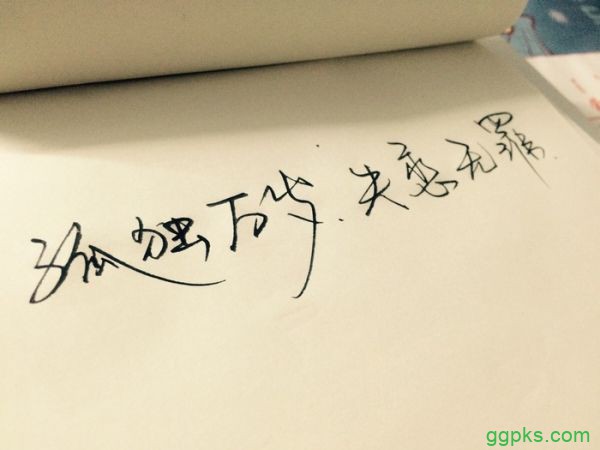 孤独万岁、失恋无罪
ggpks.com